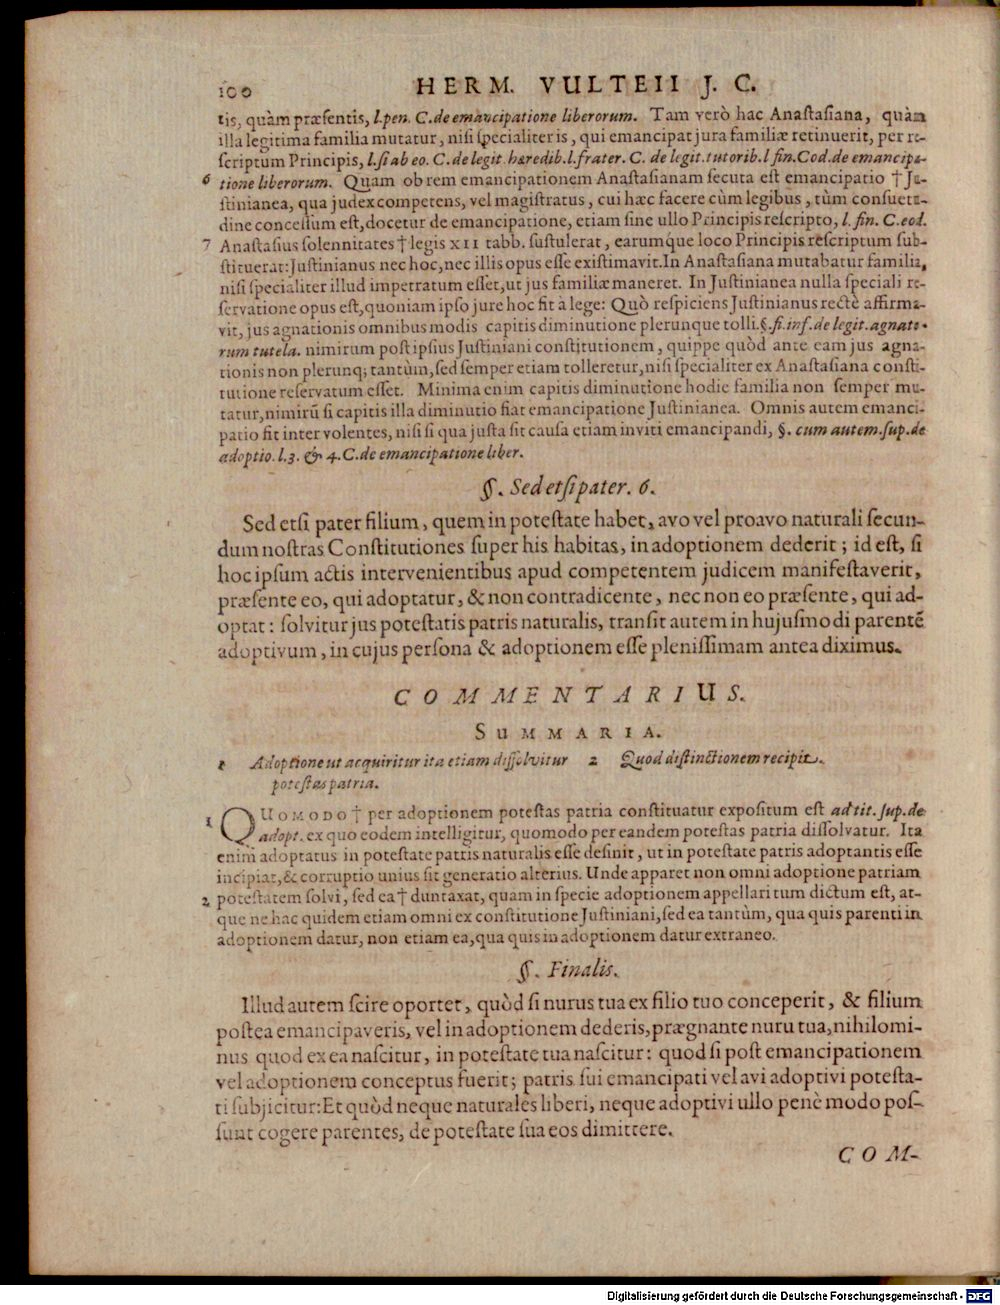 100 HERM. VULTEII J. C.
tis, quàm præsentis, l.pen. C.de emancipatione liberorum. Tam verò hac Anastasiana, quàm
illa legitima familia mutatur, nisi specialiter is, qui emancipat jura familiæ retinuerit, per re-
scriptum Principis, l.si ab eo. C. de legit. hæredib. l.frater. C. de legit. tutorib. l fin. Cod. de emancipa-
6 tione liberorum. Quam ob rem emancipationem Anastasianam secuta est emancipatio † Ju-
stinianea, qua judex competens, vel magistratus, cui hæc facere cùm legibus, tùm consuetu-
dine concessum est, docetur de emancipatione, etiam sine ullo Principis rescripto, l. fin. C. eod.
7 Anastasius solennitates † legis XII tabb. sustulerat, earumque loco Principis rescriptum sub-
stituerat: Justinianus nec hoc, nec illis opus esse existimavit. In Anastasiana mutabatur familia,
nisi specialiter illud impetratum esset, ut jus familiæ maneret. In Justinianea nulla speciali re-
servatione opus est, quoniam ipso jure hoc fit à lege: Quò respiciens Justinianus rectè affirma-
vit, jus agnationis omnibus modis capitis diminutione plerunque tolli. §. fi. inf. de legit. agnato-
rum tutela. nimirum post ipsius Justiniani constitutionem, quippe quòd ante eam jus agna-
tionis non plerunq; tantùm, sed semper etiam tolleretur, nisi specialiter ex Anastasiana consti-
tutione reservatum esset. Minima enim capitis diminutione hodie familia non semper mu-
tatur, nimirũ si capitis illa diminutio fiat emancipatione Justinianea. Omnis autem emanci-
patio fit inter volentes, nisi si qua justa sit causa etiam inviti emancipandi, §. cum autem. sup. de
adoptio. l. 3. & 4. C. de emancipatione liber.
§. Sed etsi pater. 6.
Sed etsi pater filium, quem in potestate habet, avo vel proavo naturali secun-
dum nostras Constitutiones super his habitas, in adoptionem dederit; id est, si
hoc ipsum actis intervenientibus apud competentem judicem manifestaverit,
præsente eo, qui adoptatur, & non contradicente, nec non eo præsente, qui ad-
optat: solvitur jus potestatis patris naturalis, transit autem in hujusmodi parentẽ
adoptivum, in cujus persona & adoptionem esse plenissimam antea diximus.
COMMENTARIUS.
SUMMARIA.
1 Adoptione ut acquiritur ita etiam dissolvitur 2 Quod distinctionem recipit.
potestas patria.
1 QUOMODO † per adoptionem potestas patria constituatur expositum est ad tit. sup. de
adopt. ex quo eodem intelligitur, quomodo per eandem potestas patria dissolvatur. Ita
enim adoptatus in potestate patris naturalis esse definit, ut in potestate patris adoptantis esse
incipiat, & corruptio unius sit generatio alterius. Unde apparet non omni adoptione patriam
2 potestatem solvi, sed ea † duntaxat, quam in specie adoptionem appellari tum dictum est, at-
que ne hac quidem etiam omni ex constitutione Justiniani, sed ea tantùm, qua quis parenti in
adoptionem datur, non etiam ea, qua quis in adoptionem datur extraneo.
§. Finalis.
Illud autem scire oportet, quòd si nurus tua ex filio tuo conceperit, & filium
postea emancipaveris, vel in adoptionem dederis, prægnante nuru tua, nihilomi-
nus quod ex ea nascitur, in potestate tua nascitur: quod si post emancipationem
vel adoptionem conceptus fuerit; patris sui emancipati vel avi adoptivi potesta-
ti subjicitur: Et quòd neque naturales liberi, neque adoptivi ullo penè modo pos-
sunt cogere parentes, de potestate sua eos dimittere.
COM-
Digitalisierung gefördert durch die Deutsche Forschungsgemeinschaft - DFG